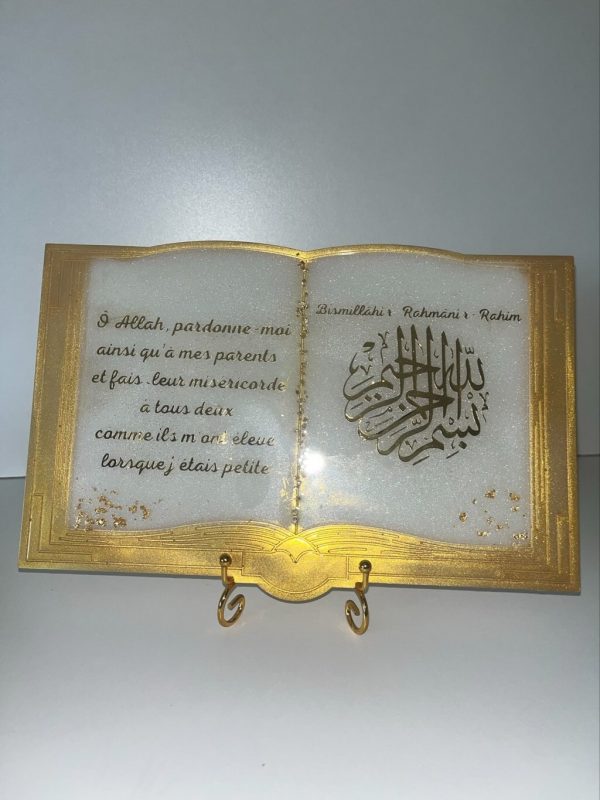 Ô Allah, pardonne-moi
ainsi qu'à mes parents
et fais-leur miséricorde
à tous deux
comme ils m'ont élevé
lorsque j'étais petite
Bismillâhi r-Rahmâni r-Rahîm
بسم الله الرحمن الرحيم